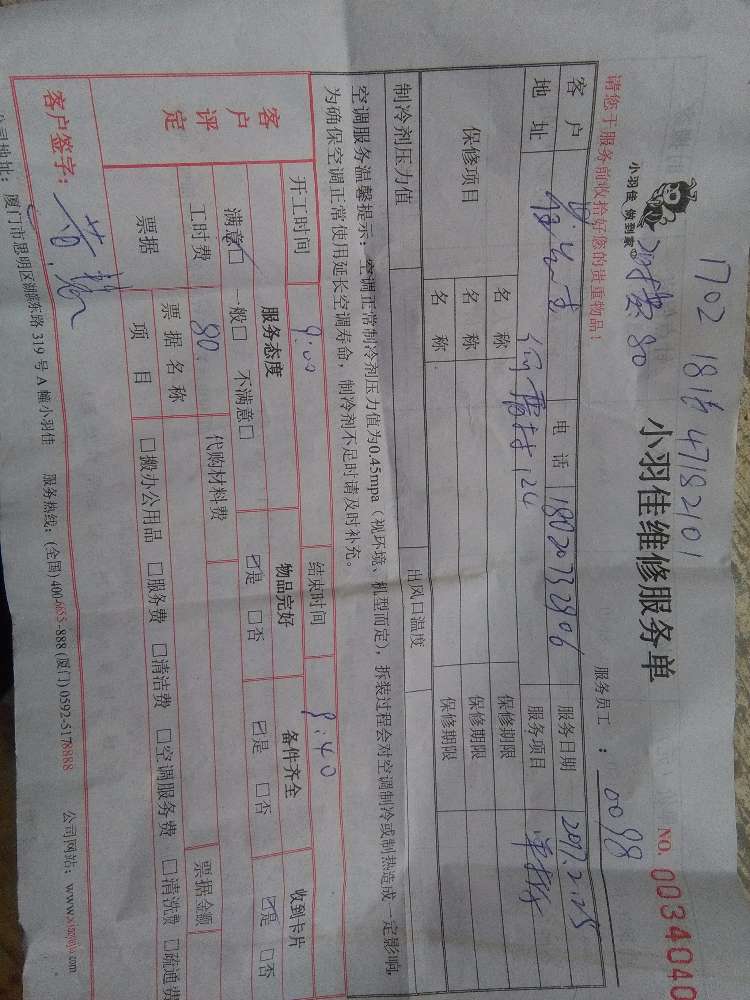 1702 181647182101
80
小羽佳 做到家
小羽佳维修服务单
NO. 0034040
请您于服务前收拾好您的贵重物品!
服务员工 : 0098
客户 电话 18020732906 服务日期 2017.2.25
地址 124 服务项目
保修项目 名称 保修期限
名称 保修期限
名称 保修期限
制冷剂压力值 出风口温度
空调服务温馨提示:空调正常制冷剂压力值为0.45mpa(视环境、机型而定),拆装过程会对空调制冷或制热造成一定影响,
为确保空调正常使用延长空调寿命,制冷剂不足时请及时补充。
客户评定
开工时间 9:00 结束时间 9:40
服务态度 物品完好 备件齐全 收到卡片
满意☑ 一般□ 不满意□ ☑是 □否 ☑是 □否 ☑是 □否
工时费 80. 代购材料费
票据 票据名称 票据金额
项目 □搬办公用品 □服务费 □清洁费 □空调服务费 □清洗费 □疏通费
客户签字:
公司地址:厦门市思明区湖滨东路319号A幢小羽佳 服务热线:(全国)400-6655-888 (厦门)0592-5178888 公司网站:www.xiaoyujia.com